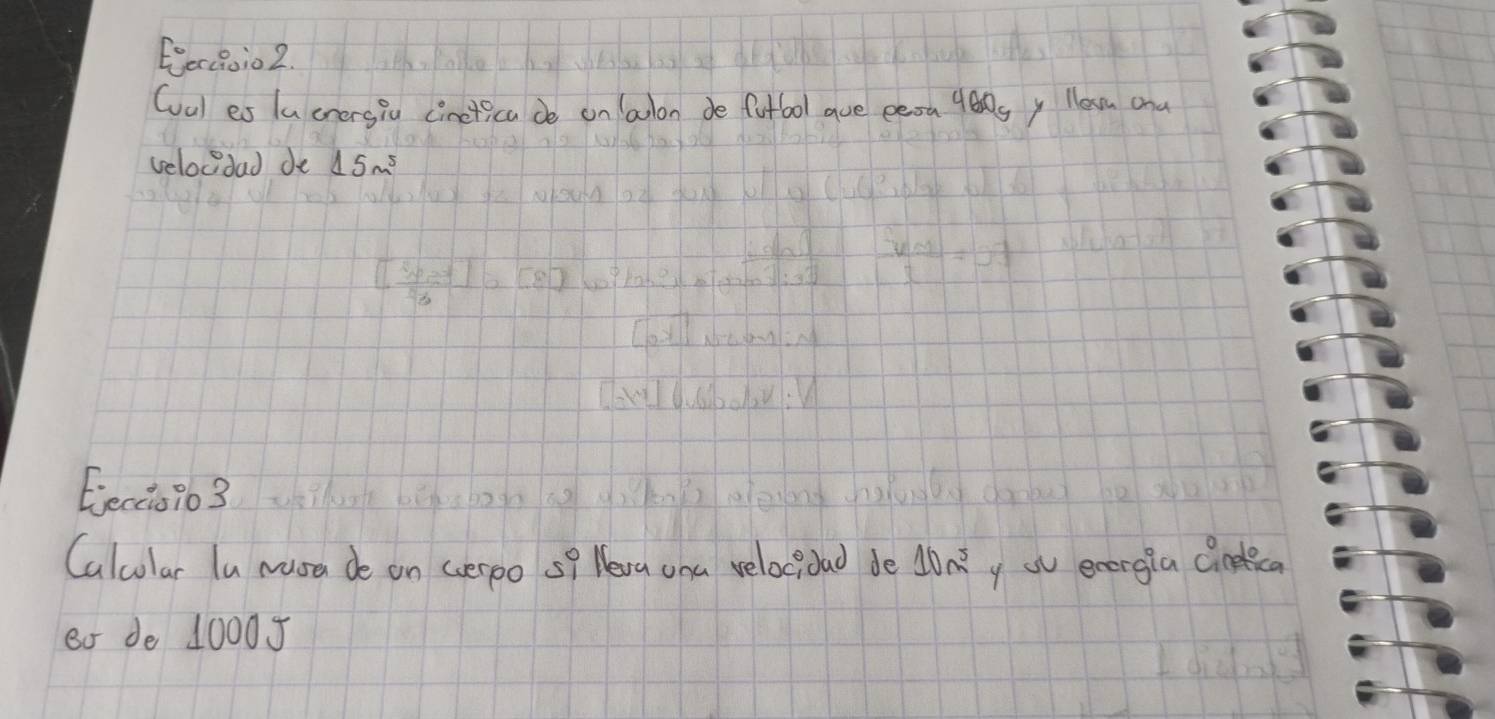 Ejercisio 2.
Cual es la energia cinetica de un balon de futbol que pesa y lleva una
velocidad de 15 m/s
Ejercisio 3
Calcular la masa de un cuerpo si lleva una velocidad de 10 m/s y su energia cinetica
es de 1000 J